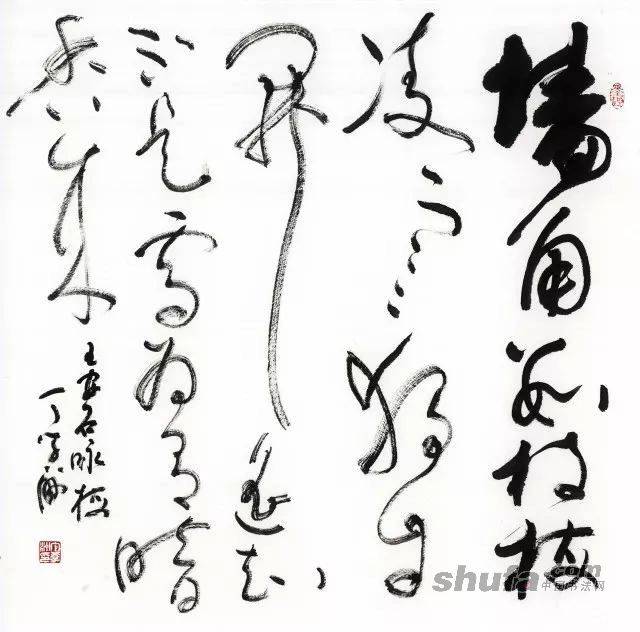 墙角数枝梅
凌寒独自
开遥知
不是雪为有暗
香来
王安石咏梅
丁学
shufa.com
中国书法网